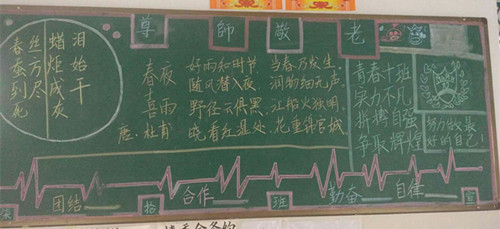 尊 師 敬 老
春蚕到死
丝方尽
蜡炬成灰
泪始干
春夜
喜雨
唐.杜甫
好雨和时节，当春乃发生.
随风 夜，润物细无声.
野径云俱黑，江船火独明.
晓看红湿处，花重锦官城
青春十班
实力不凡
拼搏自强
争取辉煌
努力做最
好的自己!
团结 拾 合作 班 勤奋 自律 宣